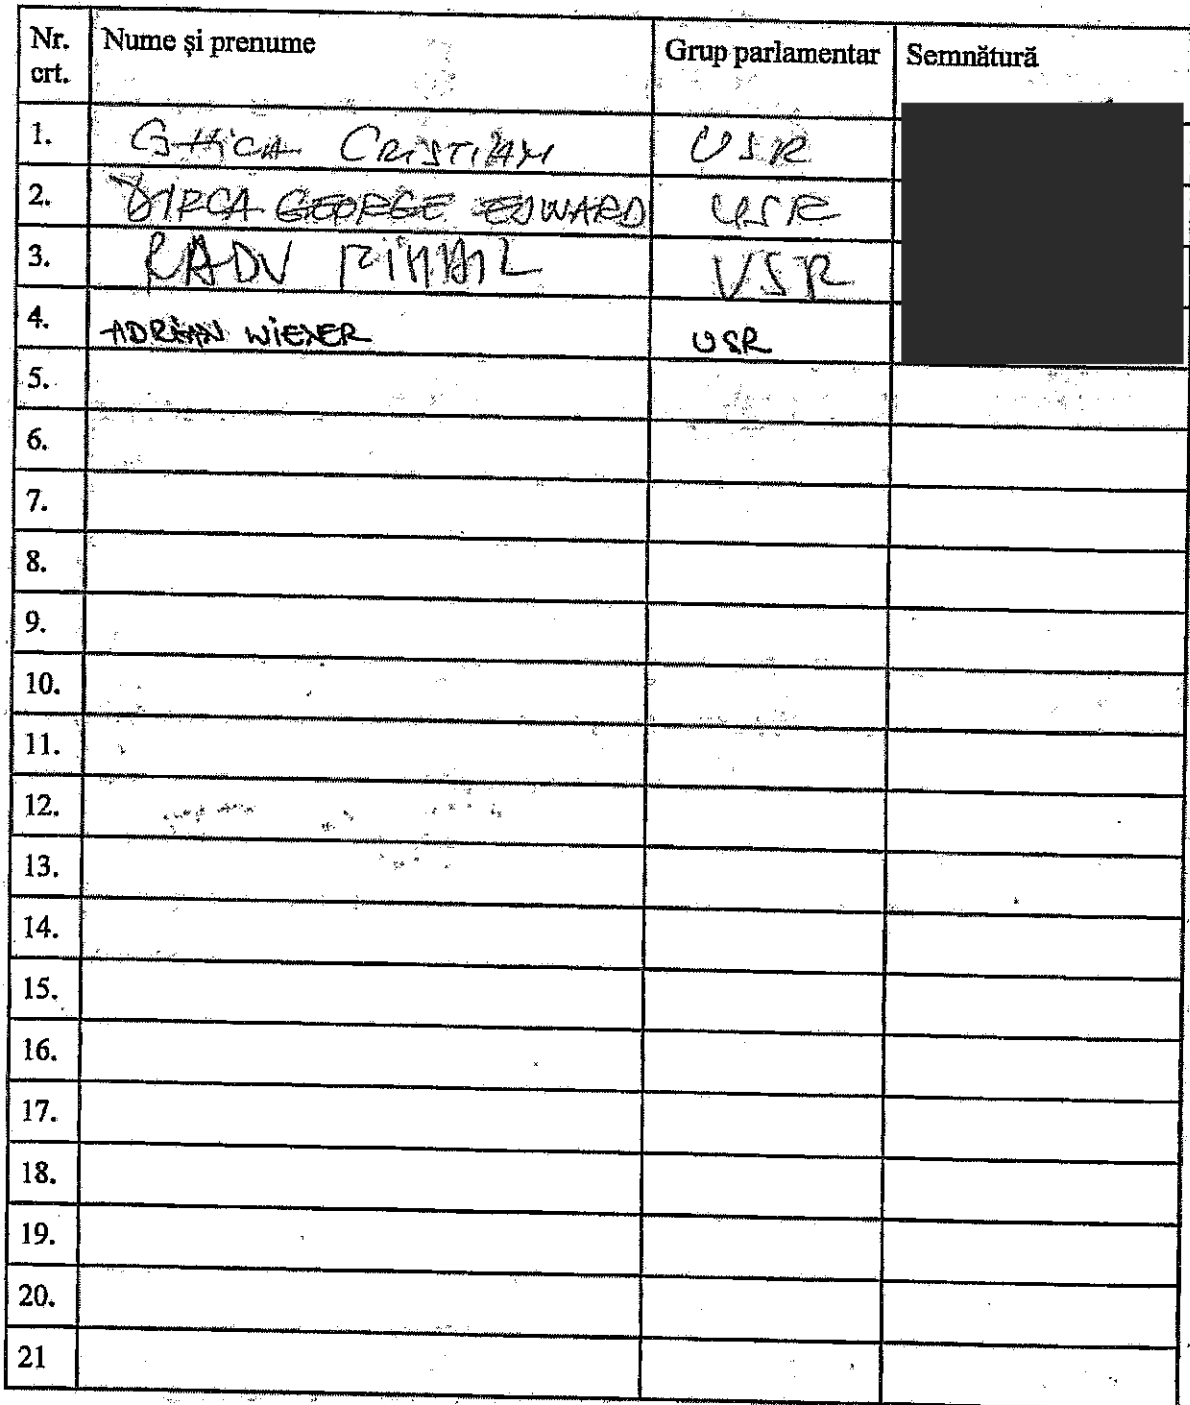 Nr. crt. Nume și prenume Grup parlamentar Semnătură
1. GHICA CRISTIAN USR
2. DIRCA GEORGE EDWARD USR
3. RADU MIHAIL USR
4. ADRIAN WIENER USR
5.
6.
7.
8.
9.
10.
11.
12.
13.
14.
15.
16.
17.
18.
19.
20.
21